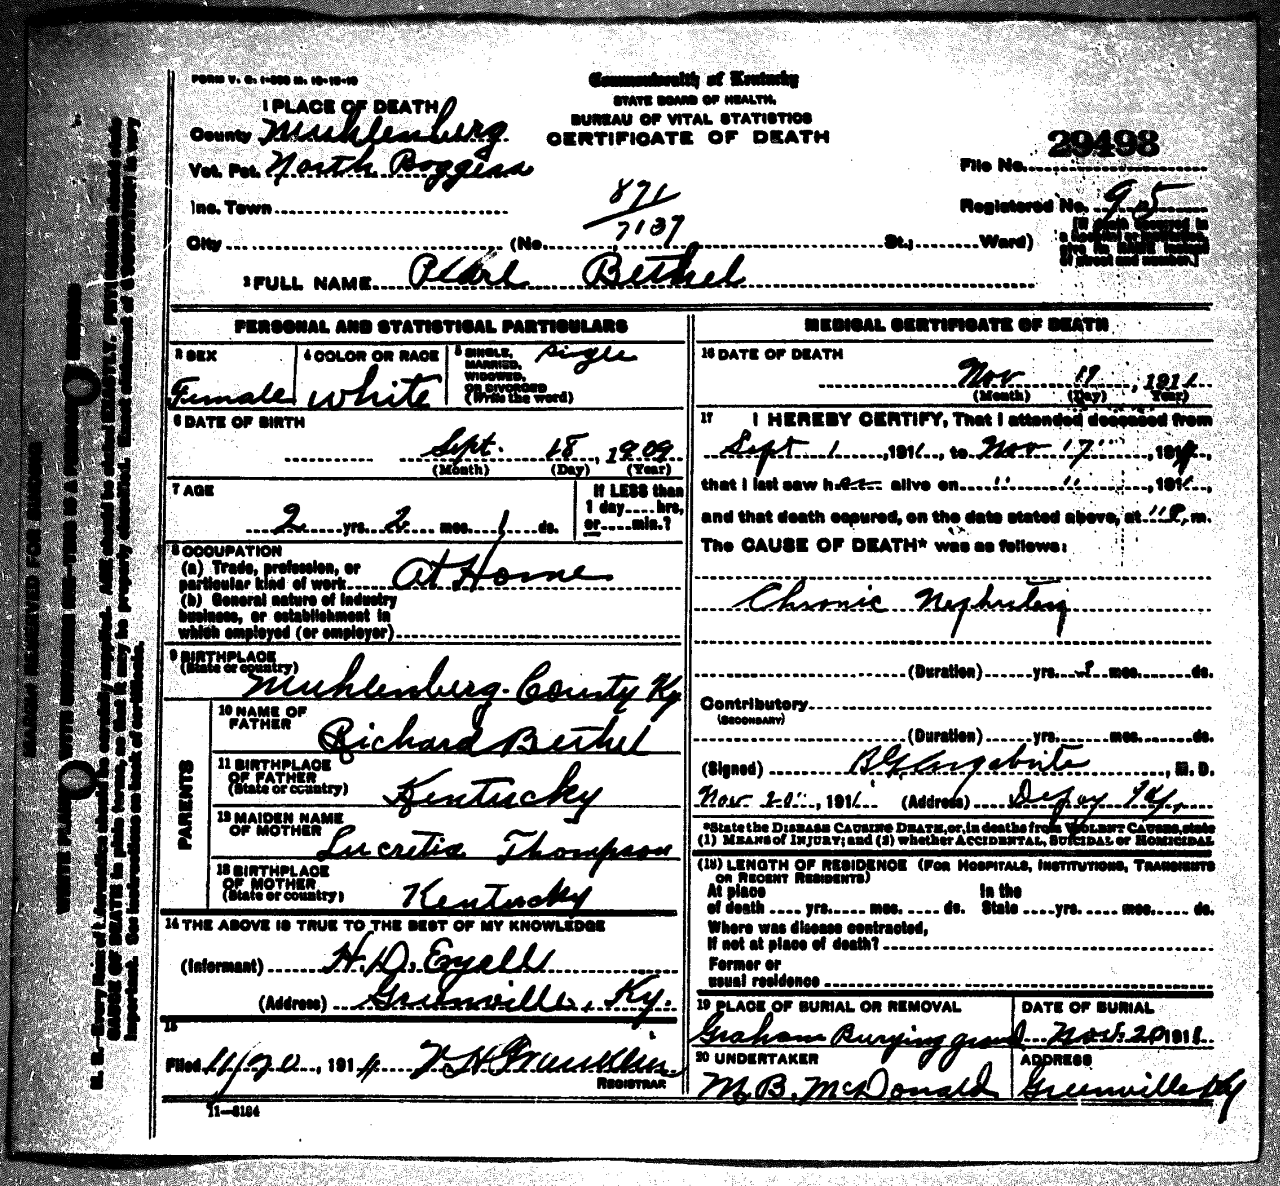 FORM V. S. 1-500 M. 10-10-10
Commonwealth of Kentucky
STATE BOARD OF HEALTH.
BUREAU OF VITAL STATISTICS
CERTIFICATE OF DEATH
1 PLACE OF DEATH
County Muhlenberg
Vot. Pct. North Boggess
Inc. Town
City (No. St.; Ward)
871
7137
File No. 29498
Registered No. 95
[If death occurred in
a hospital or institution,
give its NAME instead
of street and number.]
2 FULL NAME Pearl Bethel
PERSONAL AND STATISTICAL PARTICULARS
3 SEX
Female
4 COLOR OR RACE
White
5 SINGLE, MARRIED, WIDOWED, OR DIVORCED (Write the word)
Single
6 DATE OF BIRTH
Sept. 18, 1909
(Month) (Day) (Year)
7 AGE
2 yrs. 2 mos. 1 ds.
If LESS than
1 day hrs,
or min.?
8 OCCUPATION
(a) Trade, profession, or
particular kind of work At Home
(b) General nature of industry
business, or establishment in
which employed (or employer)
9 BIRTHPLACE
(State or country)
Muhlenberg County Ky
PARENTS
10 NAME OF
FATHER
Richard Bethel
11 BIRTHPLACE
OF FATHER
(State or country)
Kentucky
12 MAIDEN NAME
OF MOTHER
Lucretia Thompson
13 BIRTHPLACE
OF MOTHER
(State or country)
Kentucky
14 THE ABOVE IS TRUE TO THE BEST OF MY KNOWLEDGE
(Informant) H. D. Ezell
(Address) Greenville, Ky.
15
Filed 11/20, 1911
REGISTRAR
11-8184
MEDICAL CERTIFICATE OF DEATH
16 DATE OF DEATH
Nov 19, 1911
(Month) (Day) (Year)
17 I HEREBY CERTIFY, That I attended deceased from
Sept 1, 1911, to Nov 17, 1911,
that I last saw her alive on " ", 1911,
and that death occured, on the date stated above, at m.
The CAUSE OF DEATH* was as follows:
Chronic Nephritis
(Duration) yrs. mos. ds.
Contributory
(SECONDARY)
(Duration) yrs. mos. ds.
(Signed) Argabrite, M. D.
Nov 20, 1911 (Address) Depoy Ky.
*State the DISEASE CAUSING DEATH, or, in deaths from VIOLENT CAUSES, state
(1) MEANS OF INJURY; and (2) whether ACCIDENTAL, SUICIDAL or HOMICIDAL
(18) LENGTH OF RESIDENCE (FOR HOSPITALS, INSTITUTIONS, TRANSIENTS
OR RECENT RESIDENTS)
At place In the
of death yrs. mos. ds. State yrs. mos. ds.
Where was disease contracted,
If not at place of death?
Former or
usual residence
19 PLACE OF BURIAL OR REMOVAL
Graham Burying ground
DATE OF BURIAL
Nov. 20 1911
20 UNDERTAKER
M. B. McDonald
ADDRESS
Greenville Ky
MARGIN RESERVED FOR BINDING
WRITE PLAINLY WITH UNFADING INK—THIS IS A PERMANENT RECORD
N. B.—Every item of information should be carefully supplied. AGE should be stated EXACTLY. PHYSICIANS should state
CAUSE OF DEATH in plain terms, so that it may be properly classified. Exact statement of OCCUPATION is very
important. See instructions on back of certificate.